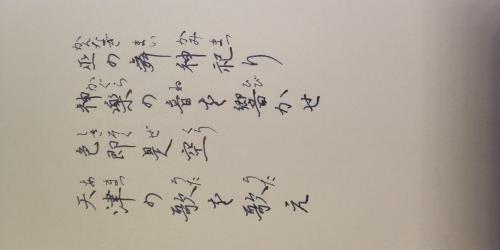 巫の舞神祀り
神楽の音を響かせ
色即是空
天津の歌を歌え